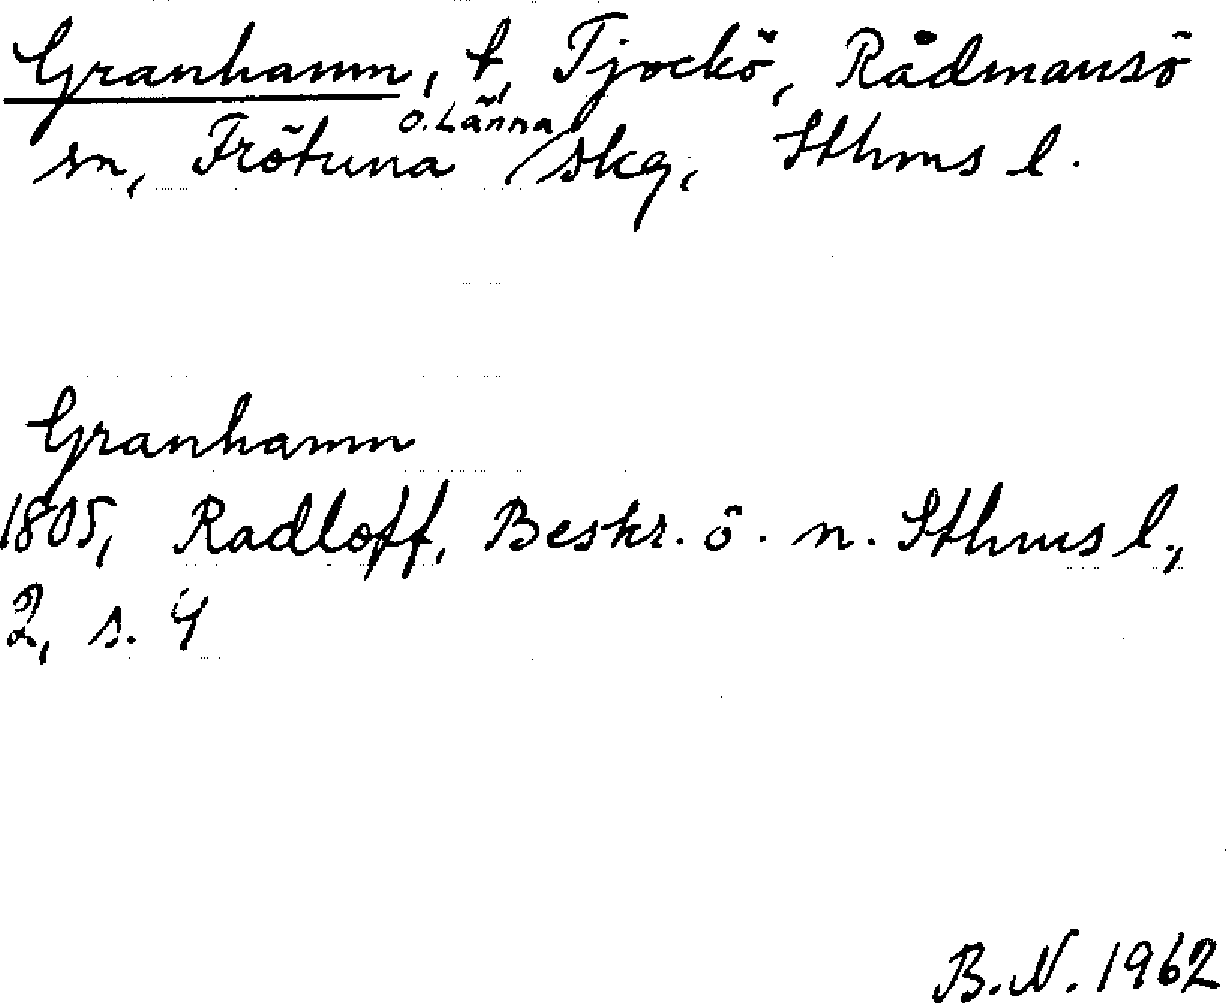 Granhamn, t, Tjockö, Rådmansö
sn, Frötuna o. Länna skg, Sthms l.
Granhamn
1805, Radloff, Beskr. ö. n. Sthms l.,
2, s. 4
B.N. 1962